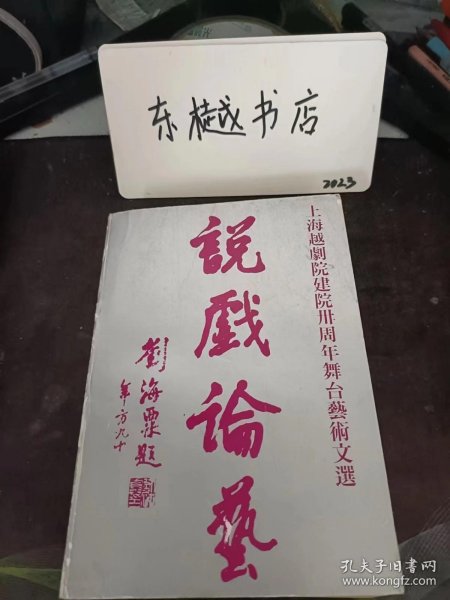 东樾书店
2023
上海越劇院建院卅周年舞台藝術文選
説戲論藝
劉海粟題
年方九十
孔夫子旧书网
www.kongfz.com